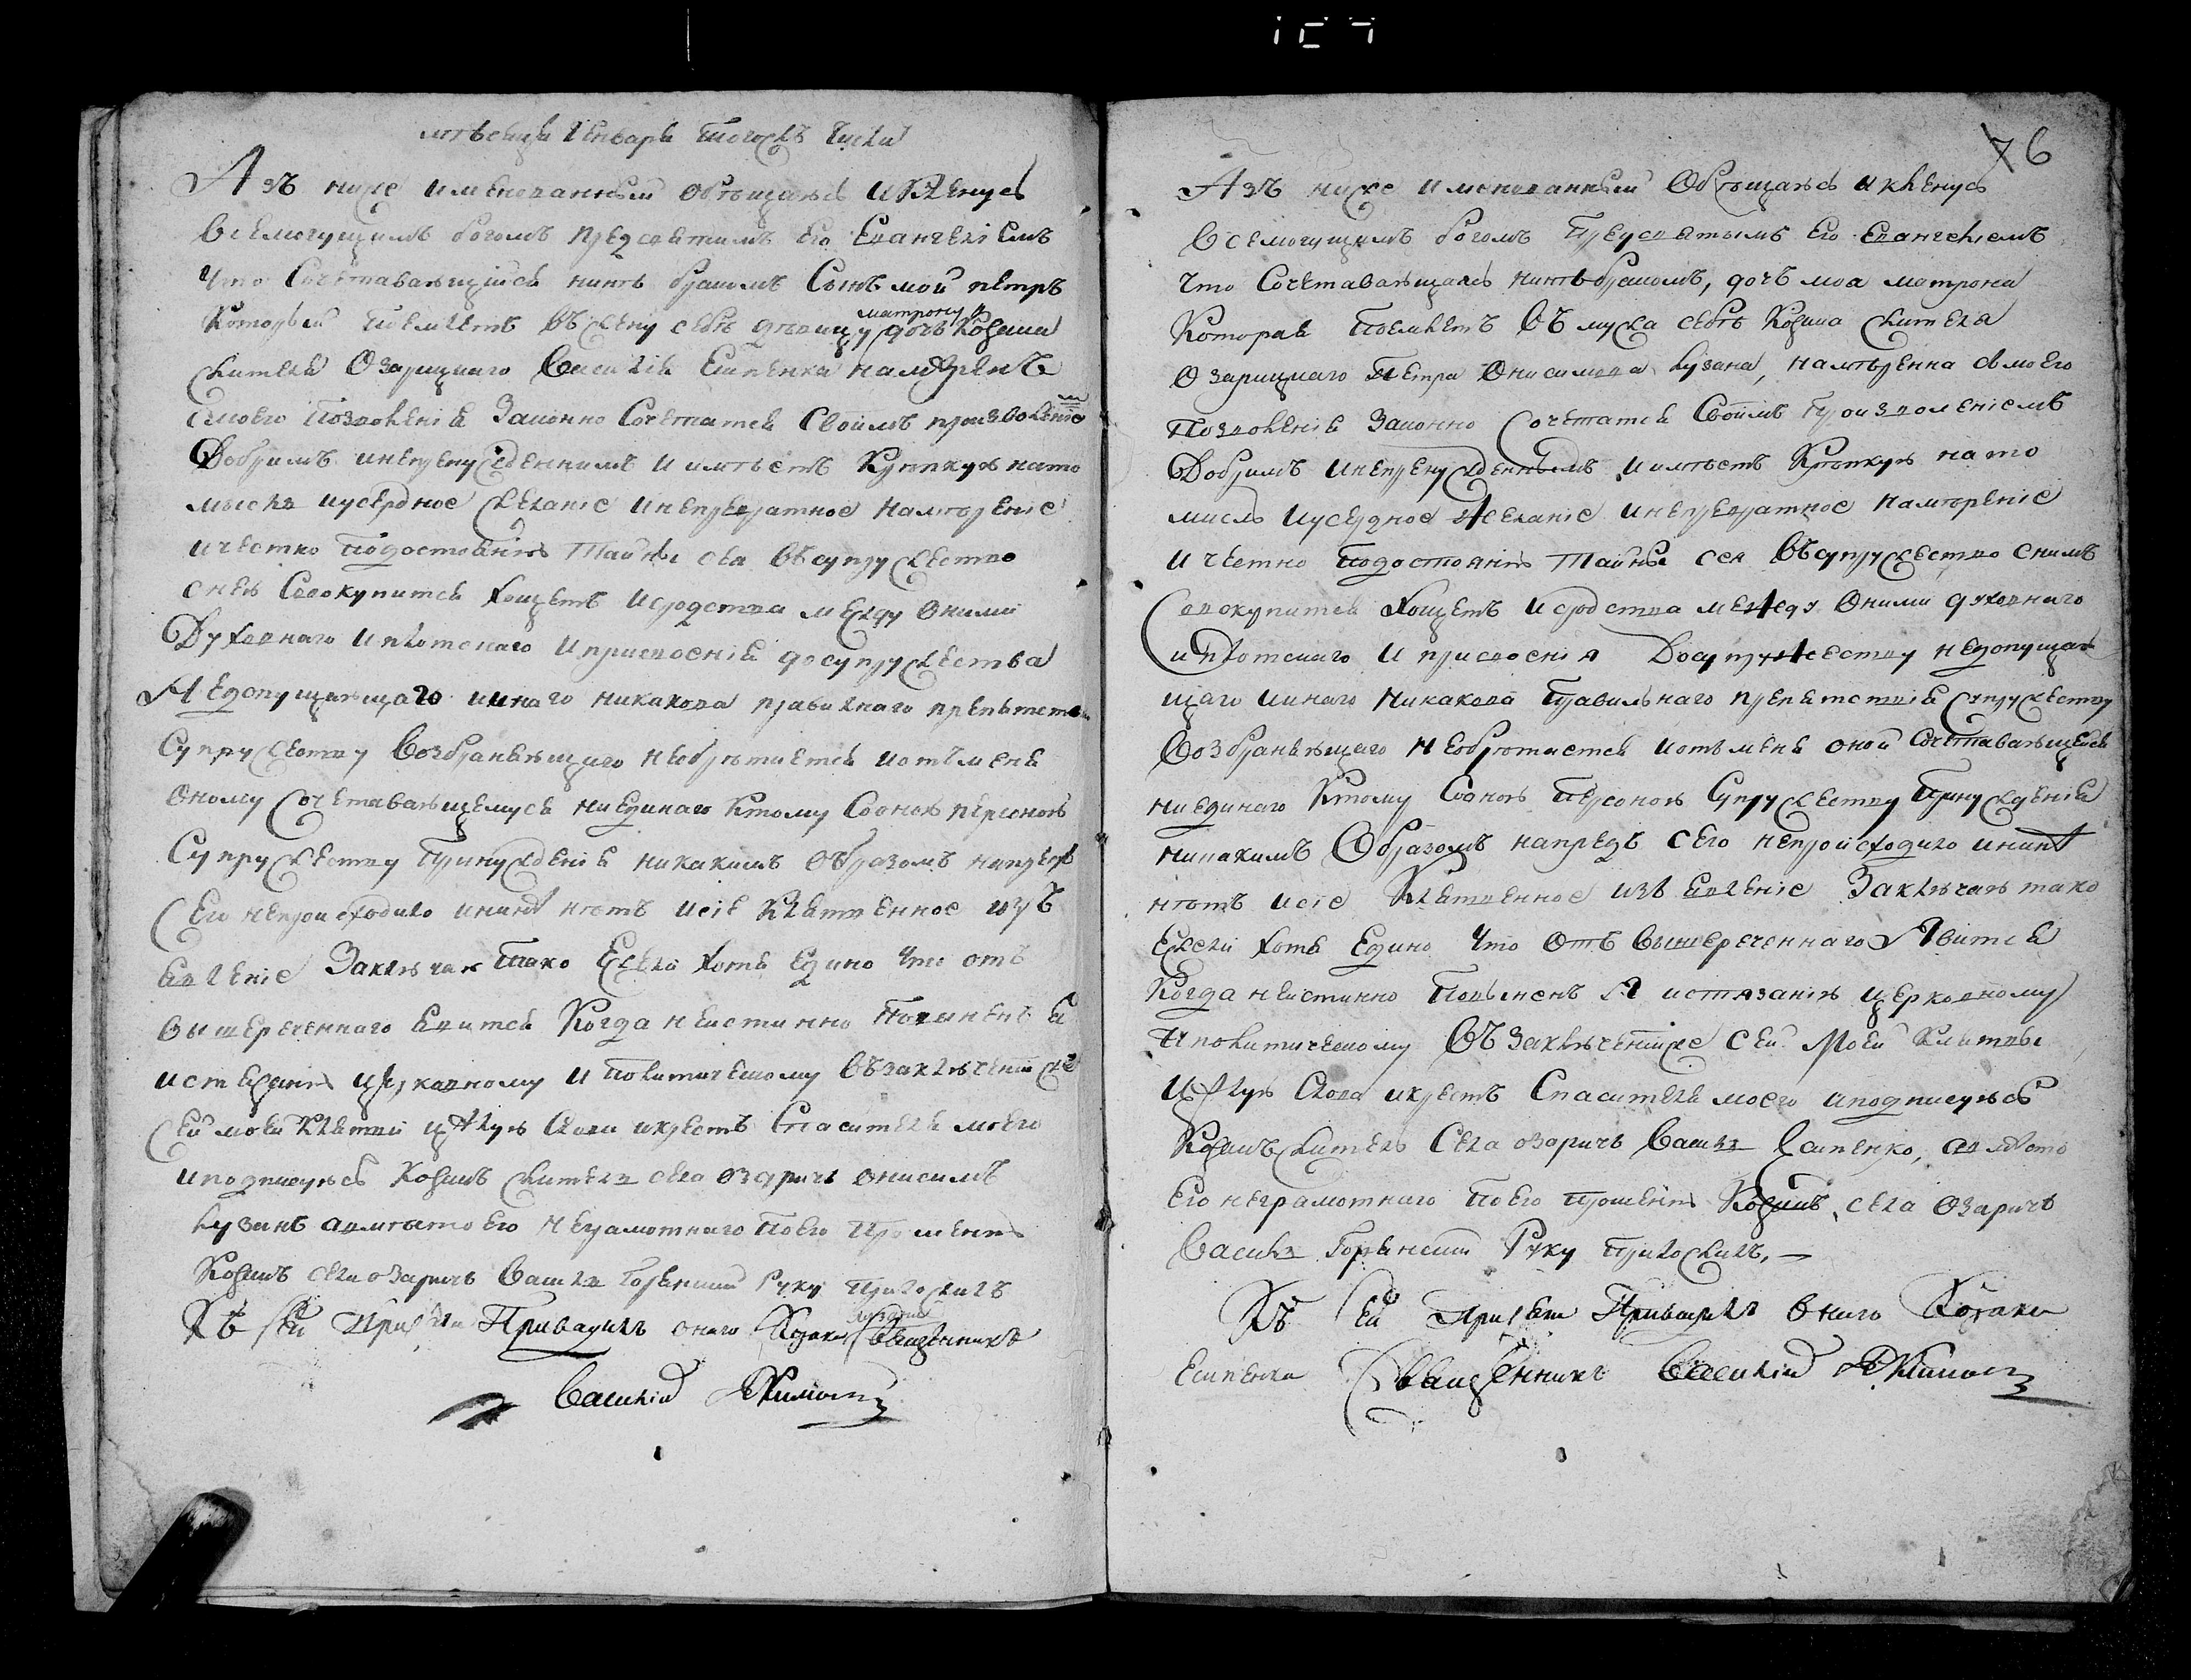 мѣсяца Генваря тогожъ числа
Азъ ниже именованный обѣщаюсь и клянусь
Всемогущимъ богомъ предсвятимъ его Евангеліемъ
Что Сочетавающійся нинѣ бракомъ Сынъ мой петръ
Который поемлетъ въ жену себѣ дѣвицу матрону дочъ Козака
жителя Озарицкаго Василія Есипенка намѣренъ
с моего позволенія Законно Сочетатся Своимъ произволеніе
мъ
Добримъ и непренужденнимъ и имѣетъ крѣпкую на то
мысль и усердное желаніе и непревратное намѣреніе
и честно подостоянію Тайны сея въ супружество
с нею Совокупится хощетъ и сродства между оними
Духовнаго и плотскаго и присвоенія до супружества
Недопущающаго и инаго никакова правилнаго препятствія
Супружеству Возбраняющаго необрѣтается и отъ мене
Оному Сочетавающемуся ни единаго к тому Со оною персоною
Супружеству принужденія никакимъ образомъ напредъ
Сего непроисходило и нинѣ нѣтъ и сіе клятвенное изъ
явленіе Заключаю тако Ежели хотя едино что отъ
вышереченнаго явится Когда неистинно повиненъ я
истязанію церковному и политическому въ заключеніи же
Сей моей клятвы цѣлую Слова и крестъ Спасителя моего
и подписуюсь козакъ житель села озаричъ онисимъ
кузанъ а вмѣсто его неграмотнаго по его прошенію
Козакъ села озаричъ василь Горянский Руку приложилъ
Къ сей присяги Привадилъ онаго Козака кузана Священникъ
Василій Якимовъ
76
Азъ ниже именованный Обѣщаюсь и клянусь
Всемогущимъ богомъ Предсвятымъ его Евангеліемъ
Что Сочетавающаясь нинѣ бракомъ, дочъ моя матрона
Которая поемлетъ въ мужа себѣ козака жителя
Озарицкаго Петра Онисимова кузана, намѣренна с моего
позволенія Законно Сочетатся Своимъ произволеніемъ
Добримъ и непренужденнымъ и имѣетъ Крѣпкую на то
мисль и усердное желаніе и непревратное намѣреніе
и честно подостоянію Тайны сея въ супружество с нимъ
Совокупится хощетъ и сродства между Оними духовнаго
и плотскаго и присвоенія До супружеству недопущаю
щаго и инаго никакова правильнаго препятствія Супружеству
Возбраняющаго необрѣтается и отъ мене оной Сочетавающейся
ни единаго к тому Со оною персоною Супружеству принужденія
никакимъ Образомъ напредъ сего непроисходило и нинѣ
нѣтъ и сіе Клятвенное изъявленіе Заключаю тако
Ежели хотя едино что отъ вышереченнаго Явится
Когда неистинно Повиненъ Я истязанію церковному
и политическому Въ Заключеніи же сей моей клятвы
Цѣлую Слова и крестъ Спасителя моего и подписуюсь
Козакъ житель Села озаричъ Василь Есипенко, а вмѣсто
его неграмотнаго по его прошенію Козакъ села Озаричъ
Василь Горянский Руку приложилъ,
Къ Сей присяги Привадилъ онаго Козака
Есипенка Священникъ Василій Якимовъ